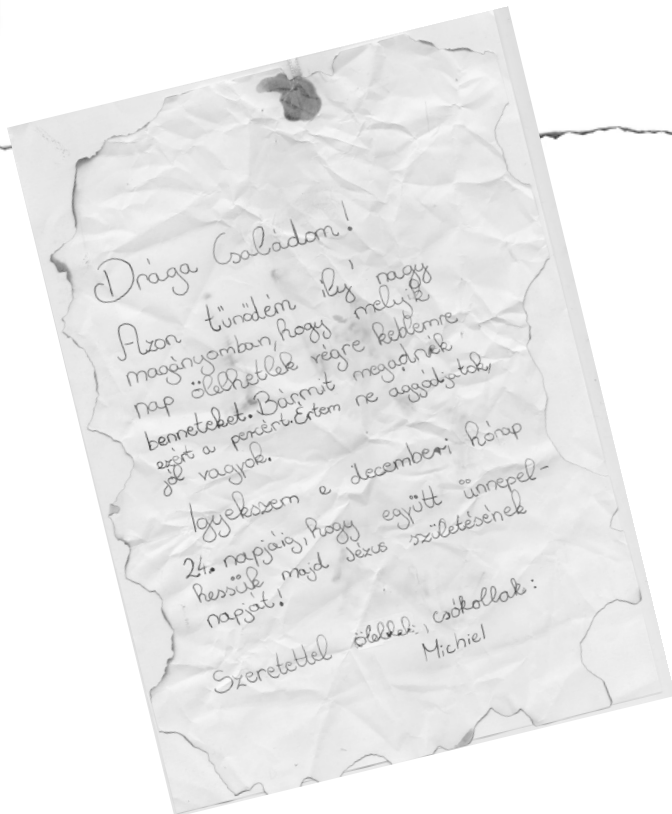 Drága Családom!
Azon tűnődém ilý nagy
magányomban, hogy melyik
nap ölelhetlek végre keblemre
benneteket. Bármit megadnék
ezért a percért. Értem ne aggódjatok,
jól vagyok.
Igyekszem e decemberi hónap
24. napjáig, hogy együtt ünnepel-
hessük majd Jézus születésének
napját!
Szeretettel ölellek, csókollak:
Michiel